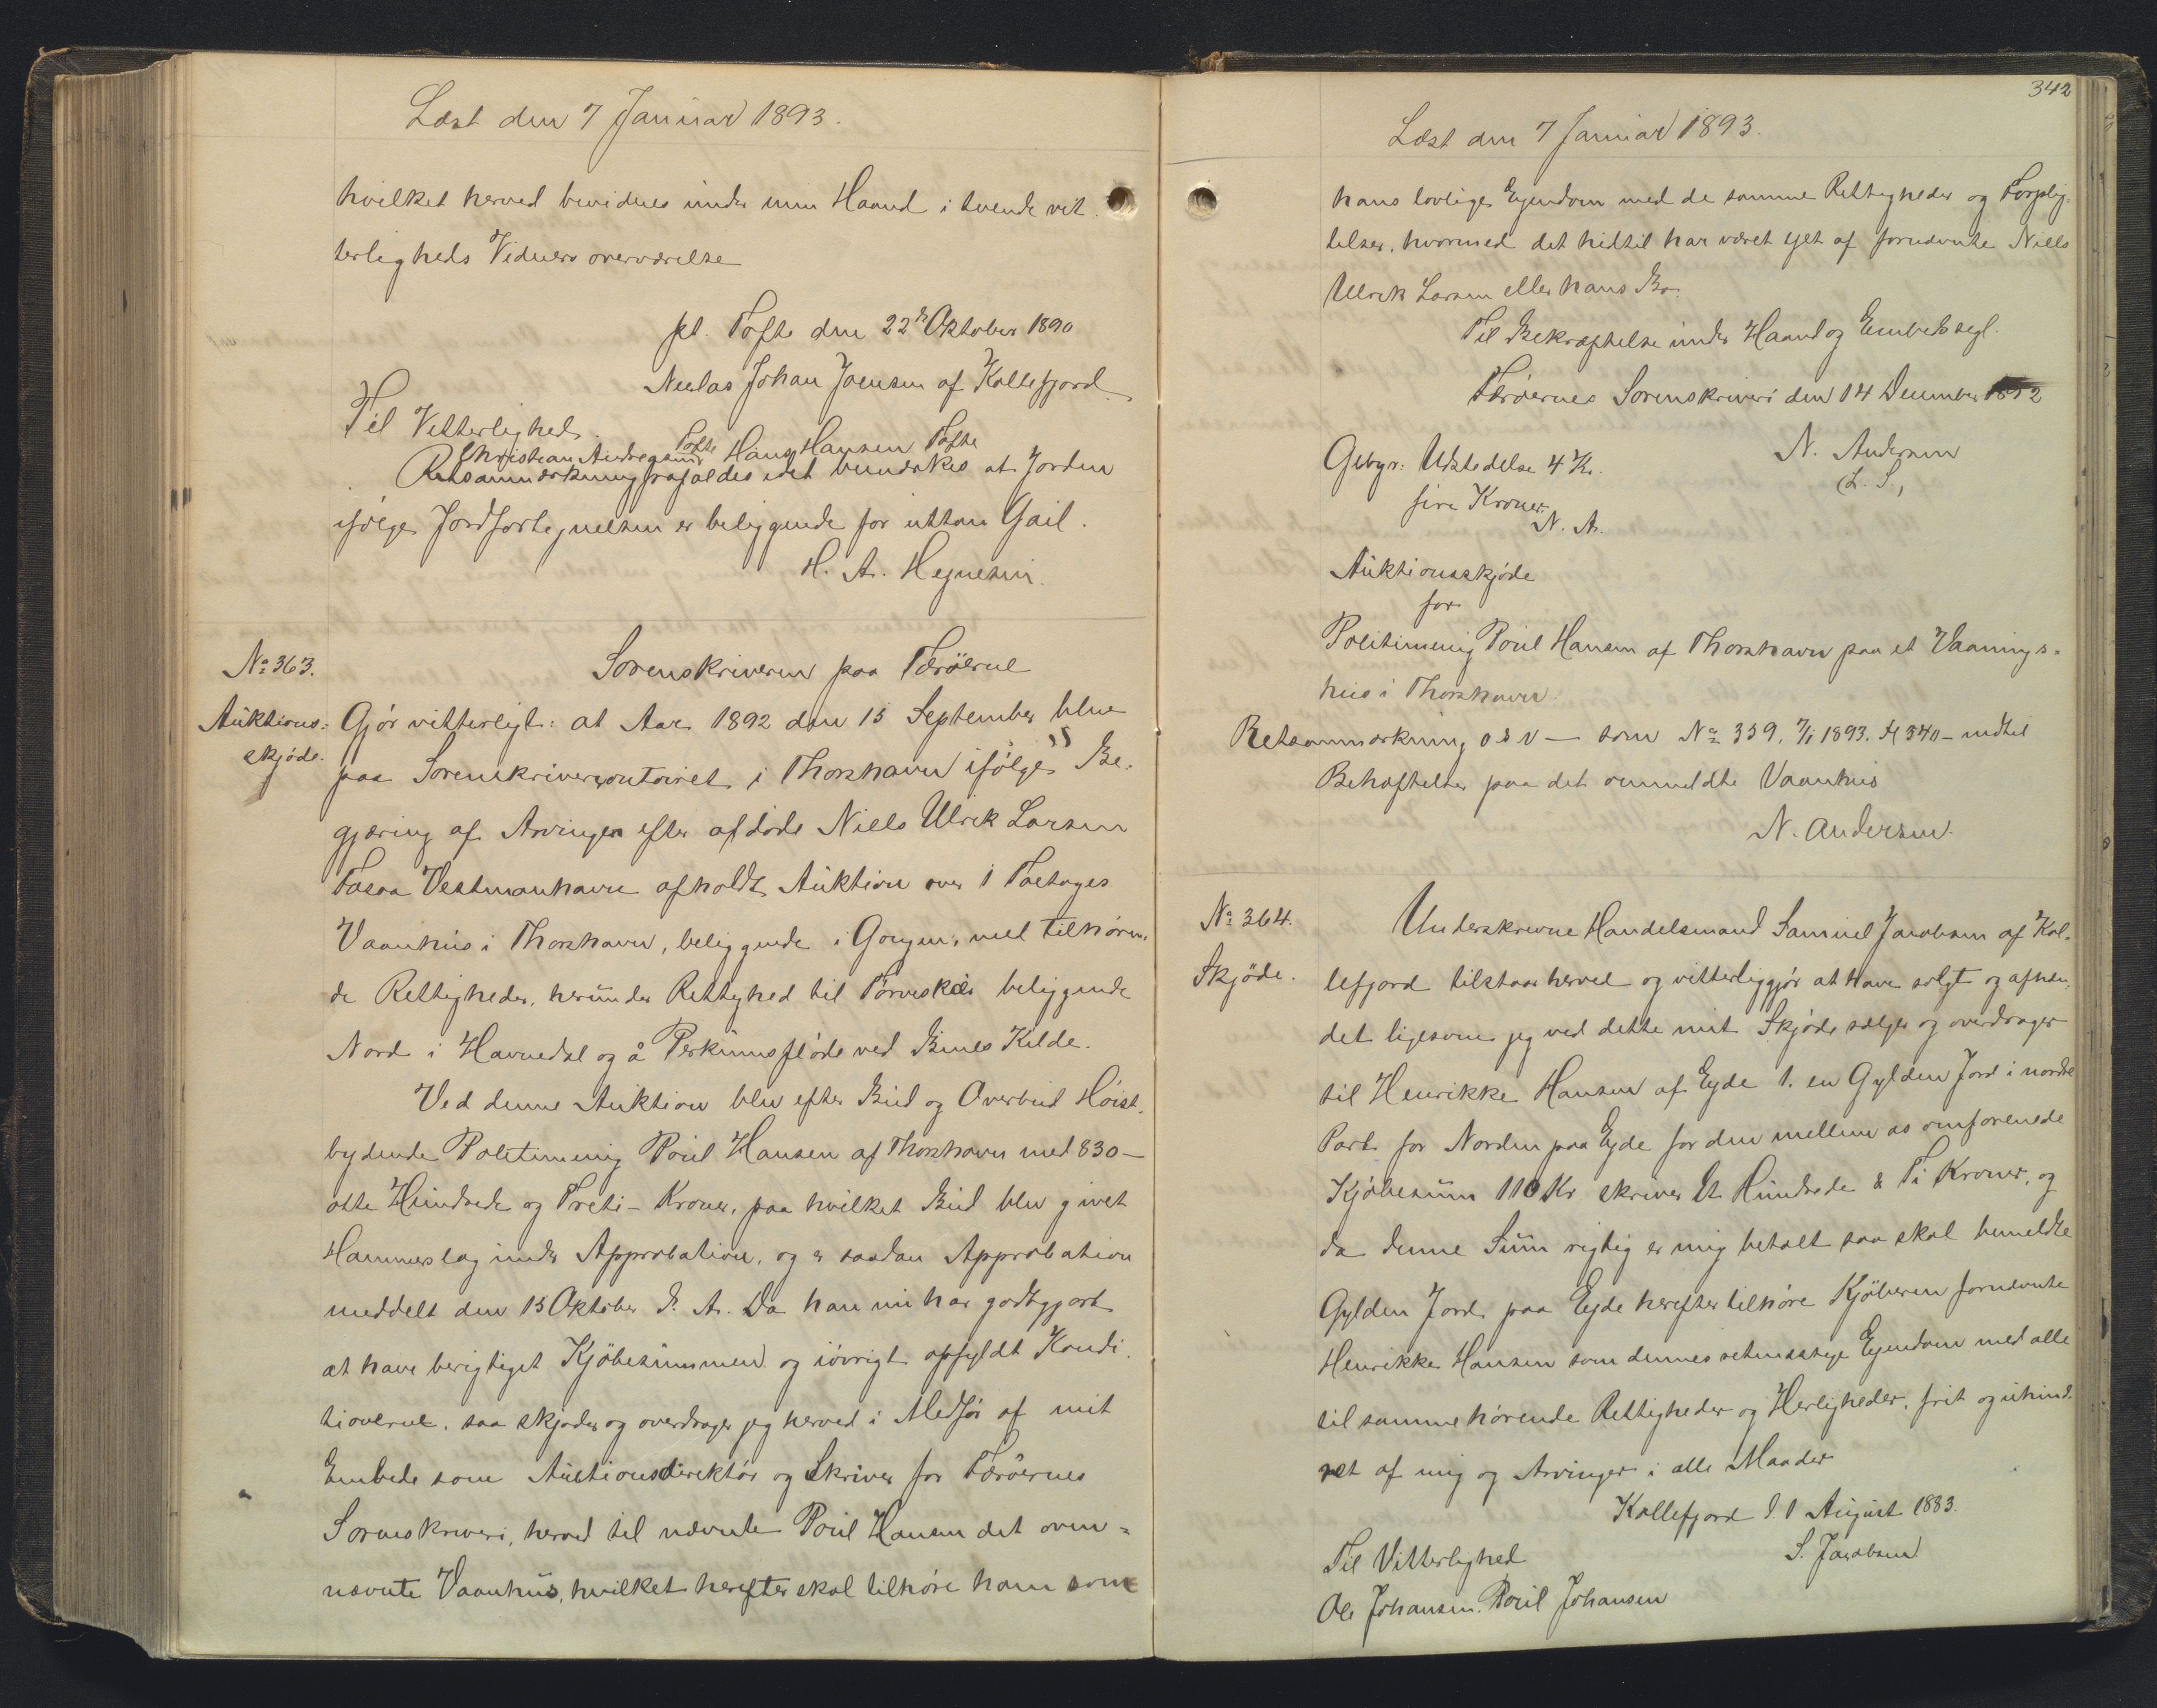 Læst den 7 Januar 1893.
hvilket herved bevidnes under min Haand i tvende vit-
terligheds Vidners overværelse
pt. Tofte den 22de Oktober 1890
Niclas Johan Joensen af Kollefjord
Til Vitterlighed.
Christian Andreasen Tofte Hans Hansen Tofte
Retsanmærkning frafaldes idet bemærkes at Jorden
ifølge Jordfortegnelsen er beliggende for uttan Gail.
H. A. Hegnesen.
No 363.
Auktions-
skjøde.
Sorenskriveren paa Færöerne
Gjör vitterligt: at Aar 1892 den 15 September blev
paa Sorenskrivercontoiret i Thorshavn ifölge Be-
gjæring af Arvingen efter afdöde Niels Ulrik Larsen
Fasaa Vestmanhavn afholdt Auktion over 1 Toetages
Vaanhus i Thorshavn, beliggende i Gongen, med tilhören-
de Rettigheder, herunder Rettighed til Törveskær beliggende
Nord i Havnedal og å Perkunsflöde ved Bines Kilde.
Ved denne Auktion blev efter Bud og Overbud Höist-
bydende Politimenig Poul Hansen af Thorshavn med 830 -
otte Hundrede og Treti - Kroner, paa hvilket Bud blev givet
Hammerslag under Approbation, og er saadan Approbation
meddelt den 15 Oktober d. A. Da han nu har godtgjort
at have berigtiget Kjöbesummen og iövrigt opfyldt Kondi-
tionerne, saa skjøder og overdrager jeg herved i Medfør af mit
Embede som Auctionsdirektör og Skriver for Færöernes
Sorenskriveri, herved til nævnte Poul Hansen det oven-
nævnte Vaanhus, hvilket herefter skal tilhøre ham som
342
Læst den 7 Januar 1893.
hans lovlige Ejendom med de samme Rettigheder og Forplig-
telser, hvormed det hidtil har været ejet af fornævnte Niels
Ulrik Larsen eller hans Bo.
Til Bekræftelse under Haand og Embedssegl.
Færöernes Sorenskriveri den 14 December 1892
N. Andersen
(L. S.,
Gebyr: Udstedelse 4 Kr.
fire Kroner.
N. A.
Auktionsskjöde
for
Politimenig Poul Hansen af Thorshavn paa et Vaanings-
hus i Thorshavn.
Retsanmærkning o s v — som No 359. 7/1 1893. fl 340 - undtil
Behæftelser paa det ommeldte Vaanhus
N. Andersen.
No 364.
Skjöde.
Underskrevne Handelsmand Samuel Jacobsen af Kol-
lefjord tilstaar herved og vitterliggjør at have solgt og afhæn-
det ligesom jeg ved dette mit Skjøde sælger og overdrager
til Henrikke Hansen af Ejde 1. en Gylden Jord i nordre
Part for Norden paa Ejde for den mellem os omforenede
Kjöbesum 110 Kr skriver Et Hundrede & Ti Kroner, og
da denne Sum rigtig er mig betalt saa skal bemeldte
Gylden Jord paa Ejde herefter tilhøre Kjöberen fornævnte
Henrikke Hansen som dennes retmæssige Ejendom med alle
til samme hørende Rettigheder og Herligheder, frit og uhind-
ret af mig og Arvinger i alle Maader
Kollefjord d. 1 August 1883.
S. Jacobsen
Til Vitterlighed
Ole Johansen. Poul Johansen